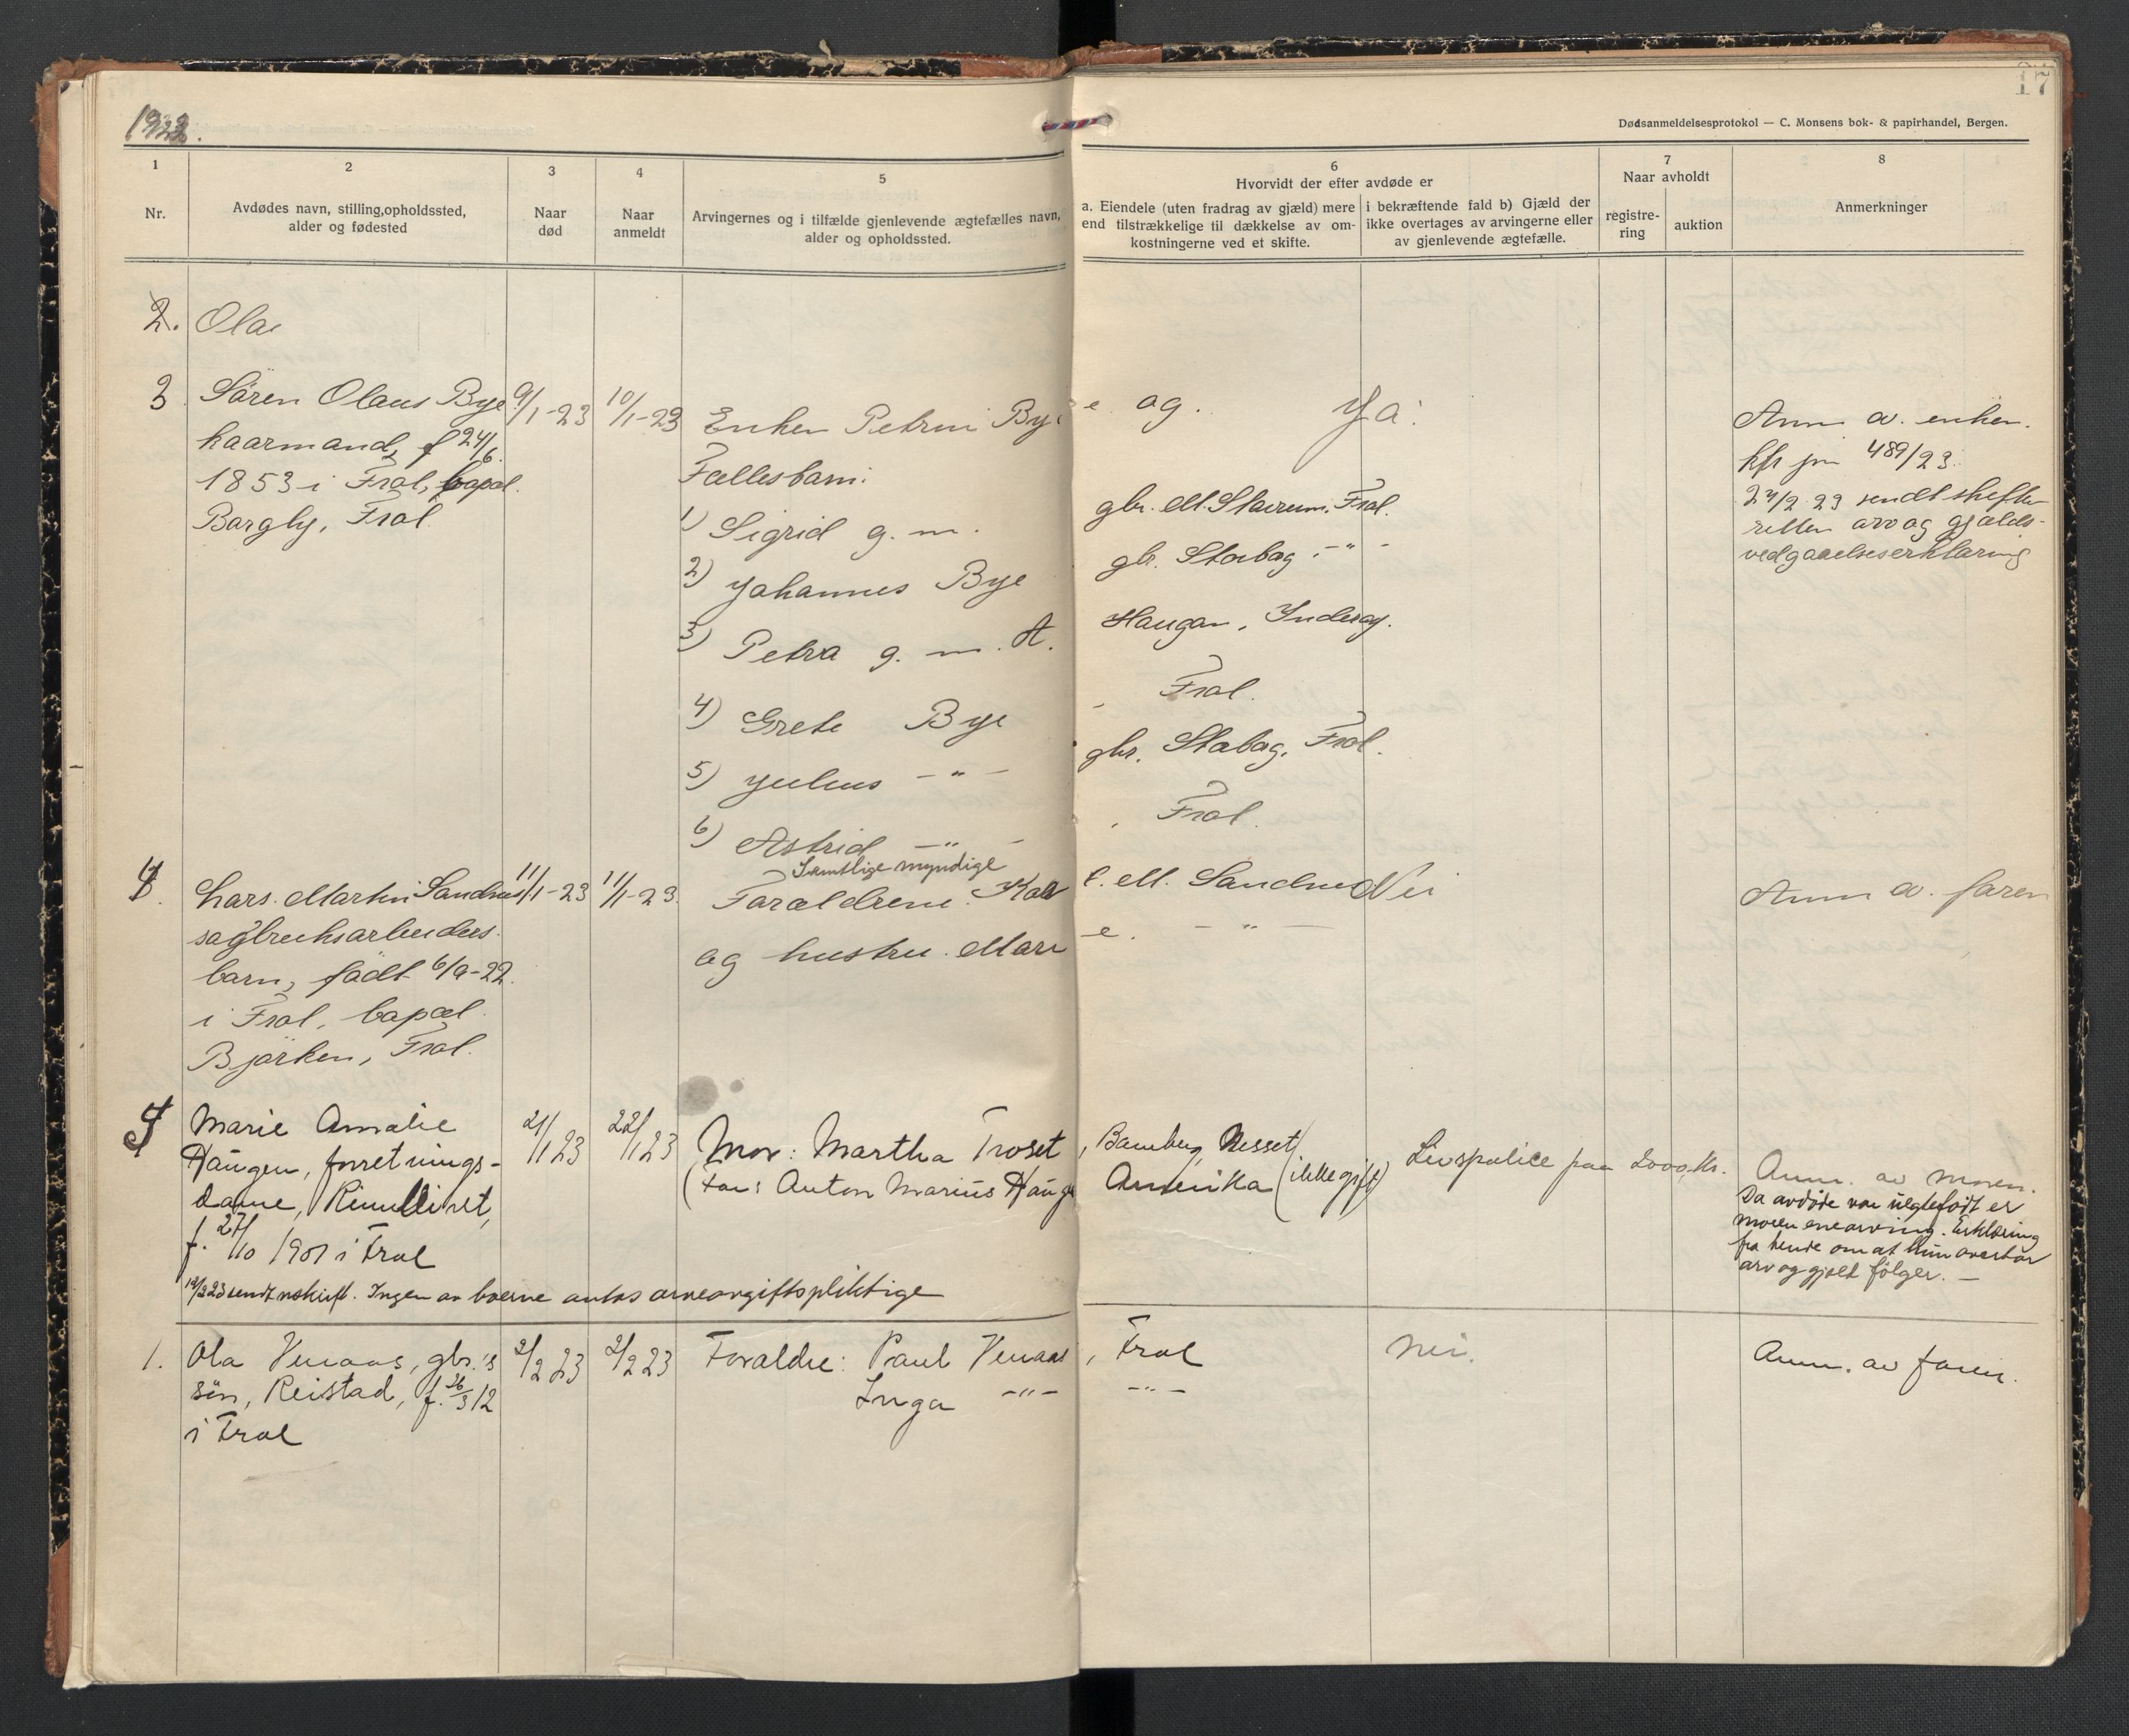 17
1922.
Dødsanmeldelsesprotokol — C. Monsens bok- & papirhandel, Bergen.
1
2
3
4
5
6
7
8
Nr.
Avdødes navn, stilling, opholdssted,
alder og fødested
Naar
død
Naar
anmeldt
Arvingernes og i tilfælde gjenlevende ægtefælles navn,
alder og opholdssted.
Hvorvidt der efter avdøde er
a. Eiendele (uten fradrag av gjæld) mere
end tilstrækkelige til dækkelse av om-
kostningerne ved et skifte.
i bekræftende fald b) Gjæld der
ikke overtages av arvingerne eller
av gjenlevende ægtefælle.
Naar avholdt
registre-
ring
auktion
Anmerkninger
2. Ola
3 Sören Olaus Bye 9/1-23 10/1-23 Enken Petrine Bye og. Ja. Anm av. enken.
kaarmand, f 24/6. Fællesbarn: kfr jn 489/23.
1853 i Frol, bopæl. 1) Sigrid g. m. gbr. M. Stavrum. Frol. 24/2 23 sendt skifte-
Bargly, Frol. retten arv og gjælds-
2) Johannes Bye gbr. Stabag. -"- vedgaaelseserklæring
3) Petra g. m. A. Haugan, Inderøy.
4) Grete Bye Frol.
5) Julius -"- gbr. Stabag, Frol.
6) Astrid -"- Frol.
Samtlige myndige
4. Lars Martin Sandnes 11/1-23 11/1-23. Forældrene. M. Sandnes Nei Anm av. faren
sagbruksarbeiders og hustru. Mari -"-
barn, födt 6/9-22.
i Frol, bopæl
Bjørken, Frol.
5 Marie Amalie 21/1 23 22/1 23 Mor: Martha Troset, Bamberg, Nesset Livspolice paa 2000 kr. Anm. av moren.
Haugen, forretnings- (Far: Anton Marius Haugen Amerika (ikke gift) Da avdøde var uegtefødt er
dame, moren enearving. Erklæring
f. 27/10 1901 i Frol fra hende om at hun overtar
arv og gjæld følger. —
sendt utskrift. Ingen av boerne antas arveavgiftspliktige
1. Ola Venaas, gbr.'s 2/2 23 2/2 23 Forældre: Paul Venaas, Frol Nei. Anm. av faren.
søn, Reistad, f. 26/3 12 Inga -"- -"-
i Frol